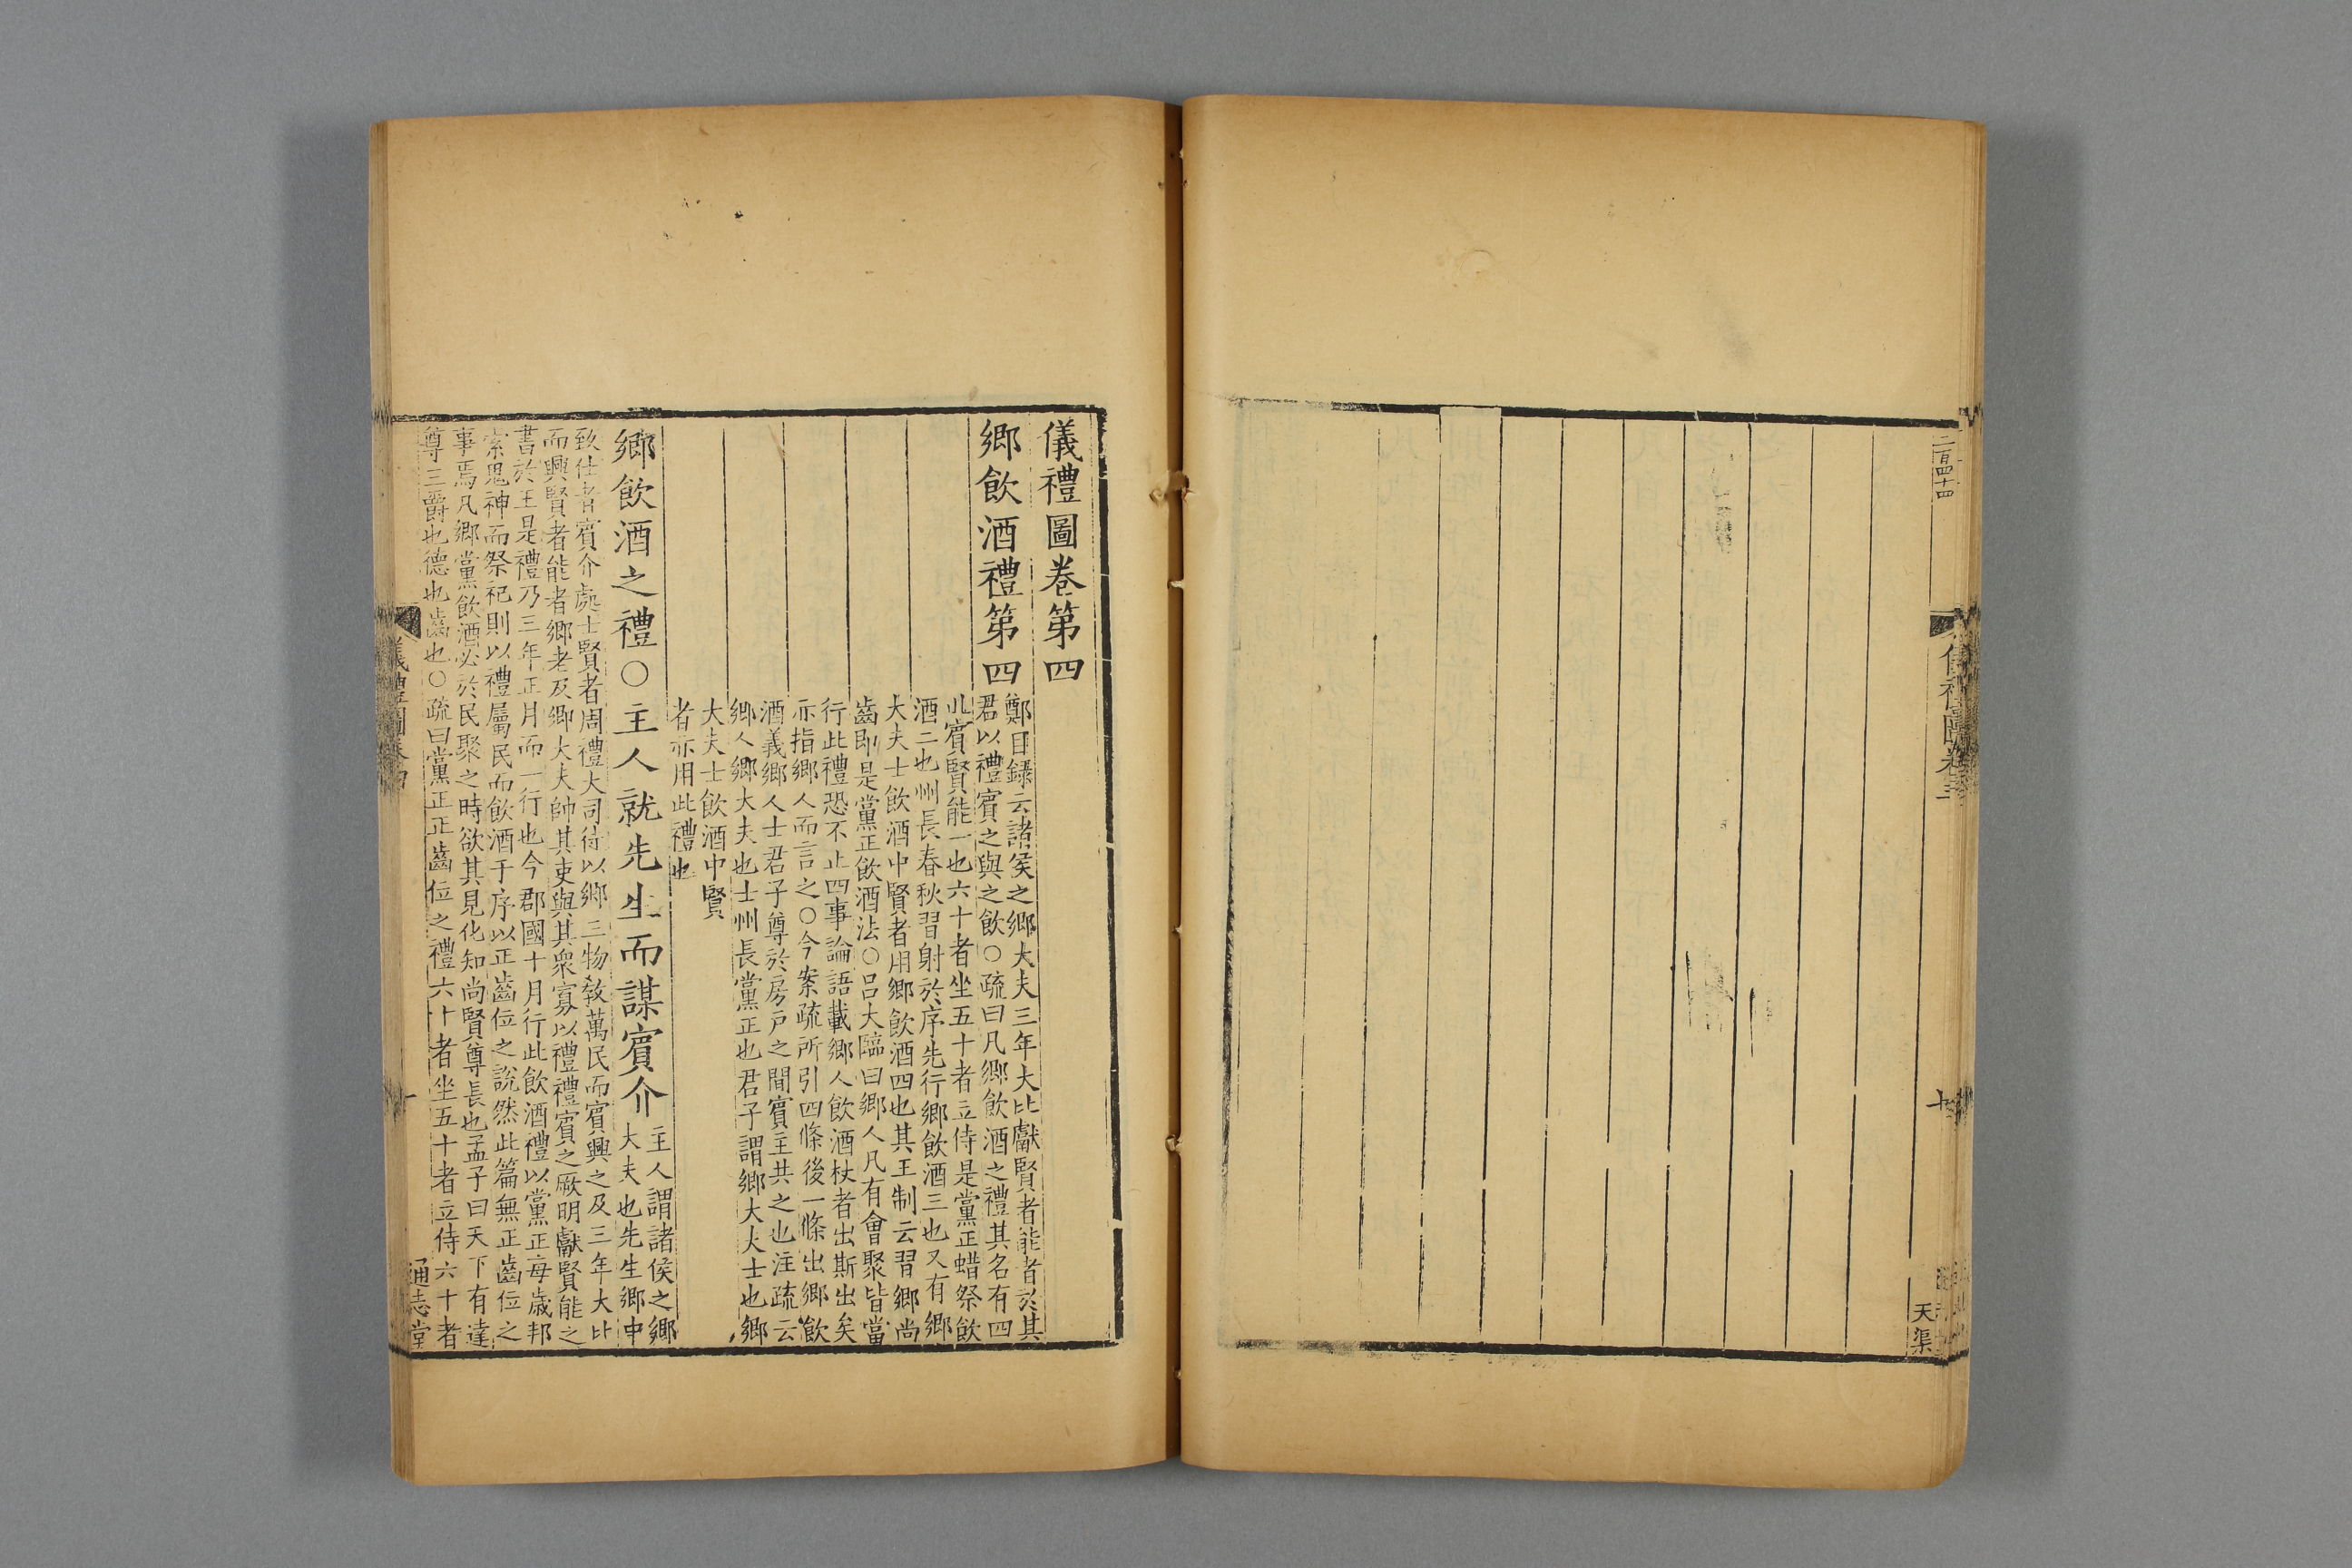 二百四十四
儀禮圖卷三
十
天渠
儀禮圖卷第四
鄉飲酒禮第四
鄭目錄云諸侯之鄉大夫三年大比獻賢者能者於其
君以禮賓之與之飲○疏曰凡鄉飲酒之禮其名有四
此賓賢能一也六十者坐五十者立侍是黨正蜡祭飲
酒二也州長春秋習射於序先行鄉飲酒三也又有鄉
大夫士飲酒中賢者用鄉飲酒四也其王制云習鄉尚
齒即是黨正飲酒法○呂大臨曰鄉人凡有會聚皆當
行此禮恐不止四事論語載鄉人飲酒杖者出斯出矣
亦指鄉人而言之○今案疏所引四條後一條出鄉飲
酒義鄉人士君子尊於房戶之間賓主共之也注疏云
鄉人鄉大夫也士州長黨正也君子謂鄉大夫士也鄉
大夫士飲酒中賢
者亦用此禮也
鄉飲酒之禮○主人就先生而謀賓介
主人謂諸侯之鄉
大夫也先生鄉中
致仕者賓介處士賢者周禮大司徒以鄉三物敎萬民而賓興之及三年大比
而興賢者能者鄉老及鄉大夫帥其吏與其衆寡以禮禮賓之厥明獻賢能之
書於王是禮乃三年正月而一行也今郡國十月行此飲酒禮以黨正每歲邦
索鬼神而祭祀則以禮屬民而飲酒于序以正齒位之說然此篇無正齒位之
事焉凡鄉黨飲酒必於民聚之時欲其見化知尚賢尊長也孟子曰天下有達
尊三爵也德也齒也○疏曰黨正正齒位之禮六十者坐五十者立侍六十者
儀禮圖卷四
一
通志堂